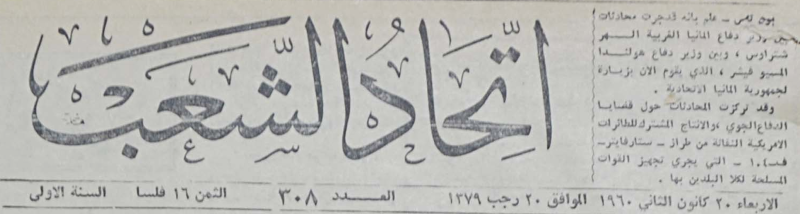 اتحاد الشعب
بون في – علم بانه قد جرت محادثات
بين وزير دفاع المانيا الغربية الهر
شتراوس ، وبين وزير دفاع هولندا
المسيو فيشر ، الذي يقوم الان بزيارة
لجمهورية المانيا الاتحادية .
وقد تركزت المحادثات حول قضايا
الدفاع الجوي ، والانتاج المشترك للطائرات
الامريكية النفاثة من طراز – ستارفايتر –
ف–١٠٤ – التي يجري تجهيز القوات
المسلحة لكلا البلدين بها .
الاربعاء ٢٠ كانون الثاني ١٩٦٠ الموافق ٢٠ رجب ١٣٧٩ العدد ٣٠٨ الثمن ١٦ فلسا السنة الاولى